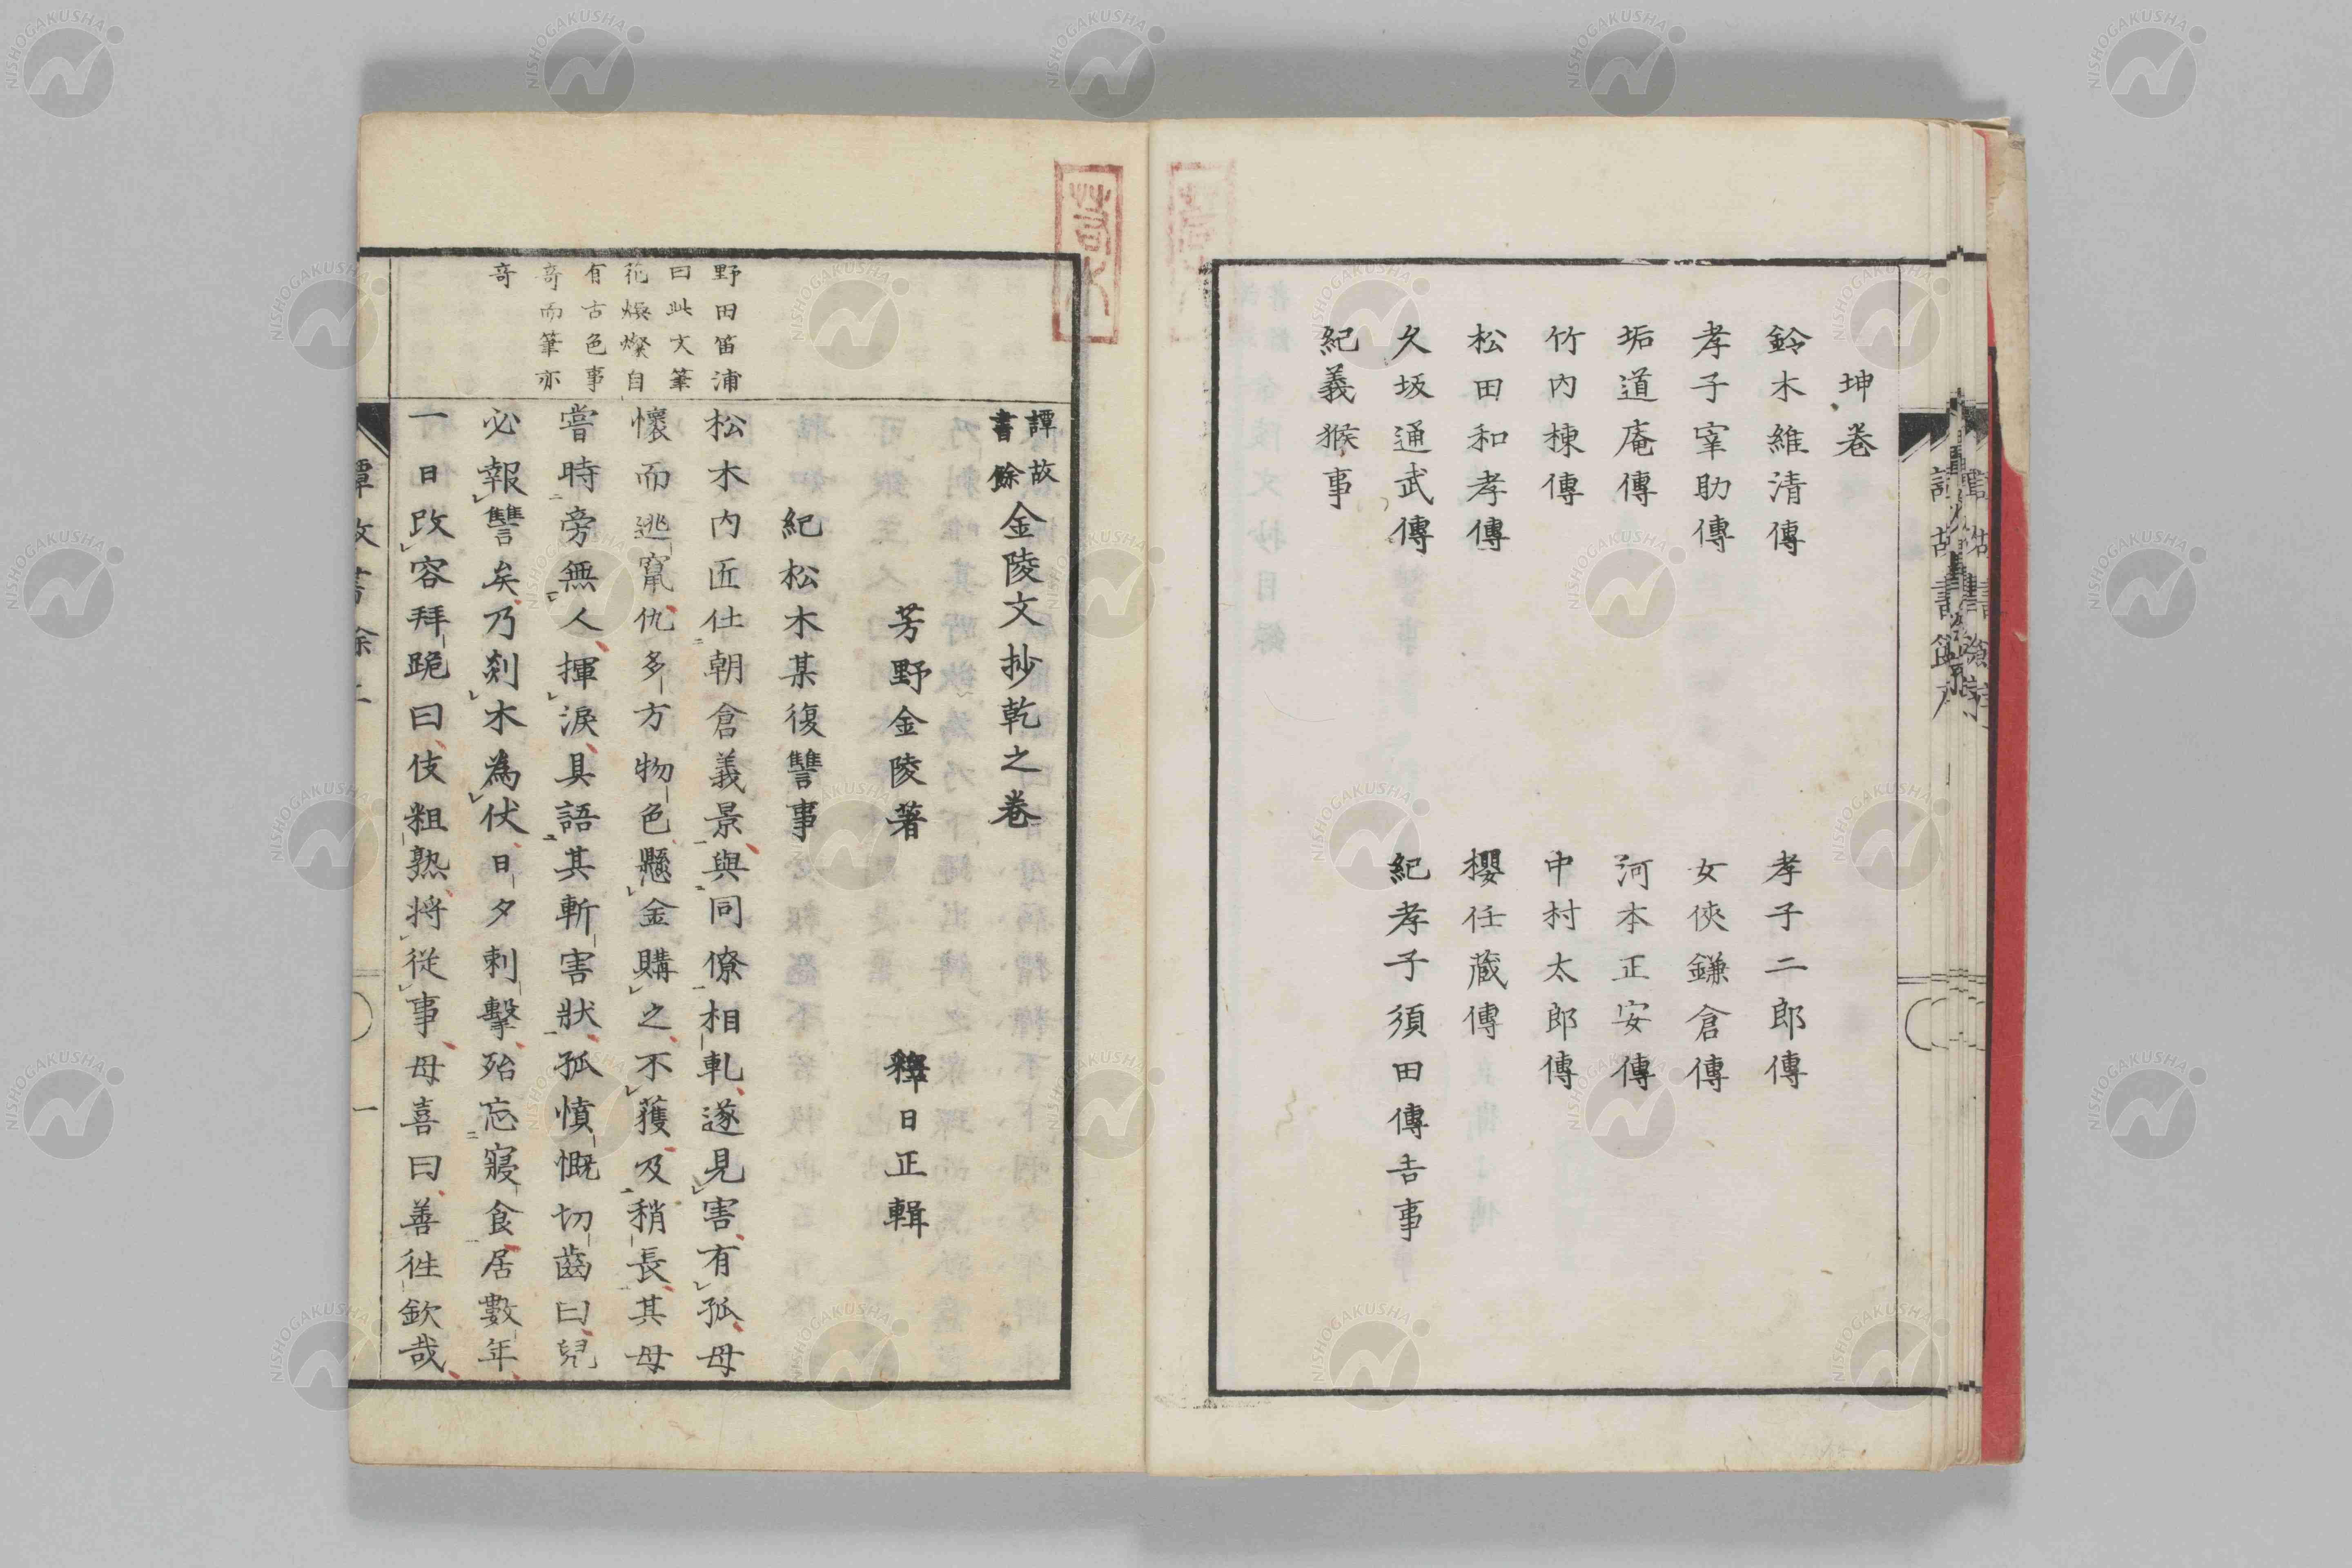 坤卷
鈴木維清傳
孝子二郎傳
孝子宰助傳
女俠鎌倉傳
垢道庵傳
河本正安傳
竹內棟傳
中村太郎傳
松田和孝傳
櫻任藏傳
久坂通武傳
紀孝子須田傳吉事
紀義猴事
譚故
書餘
金陵文抄乾之卷
芳野金陵著
釋日正輯
紀松木某復讐事
松木內匠仕朝倉義景與同僚相軋遂見害有孤母
懷而逃竄仇多方物色懸金購之不獲及稍長其母
嘗時旁無人揮淚具語其斬害狀孤憤慨切齒曰兒
必報讐矣乃刻木為伏日夕刺擊殆忘寢食居數年
一日改容拜跪曰伎粗熟將從事母喜曰善徃欽哉
野田笛浦
曰此文筆
花燦燦自
有古色事
奇而筆亦
奇
一
NISHOGAKUSHA